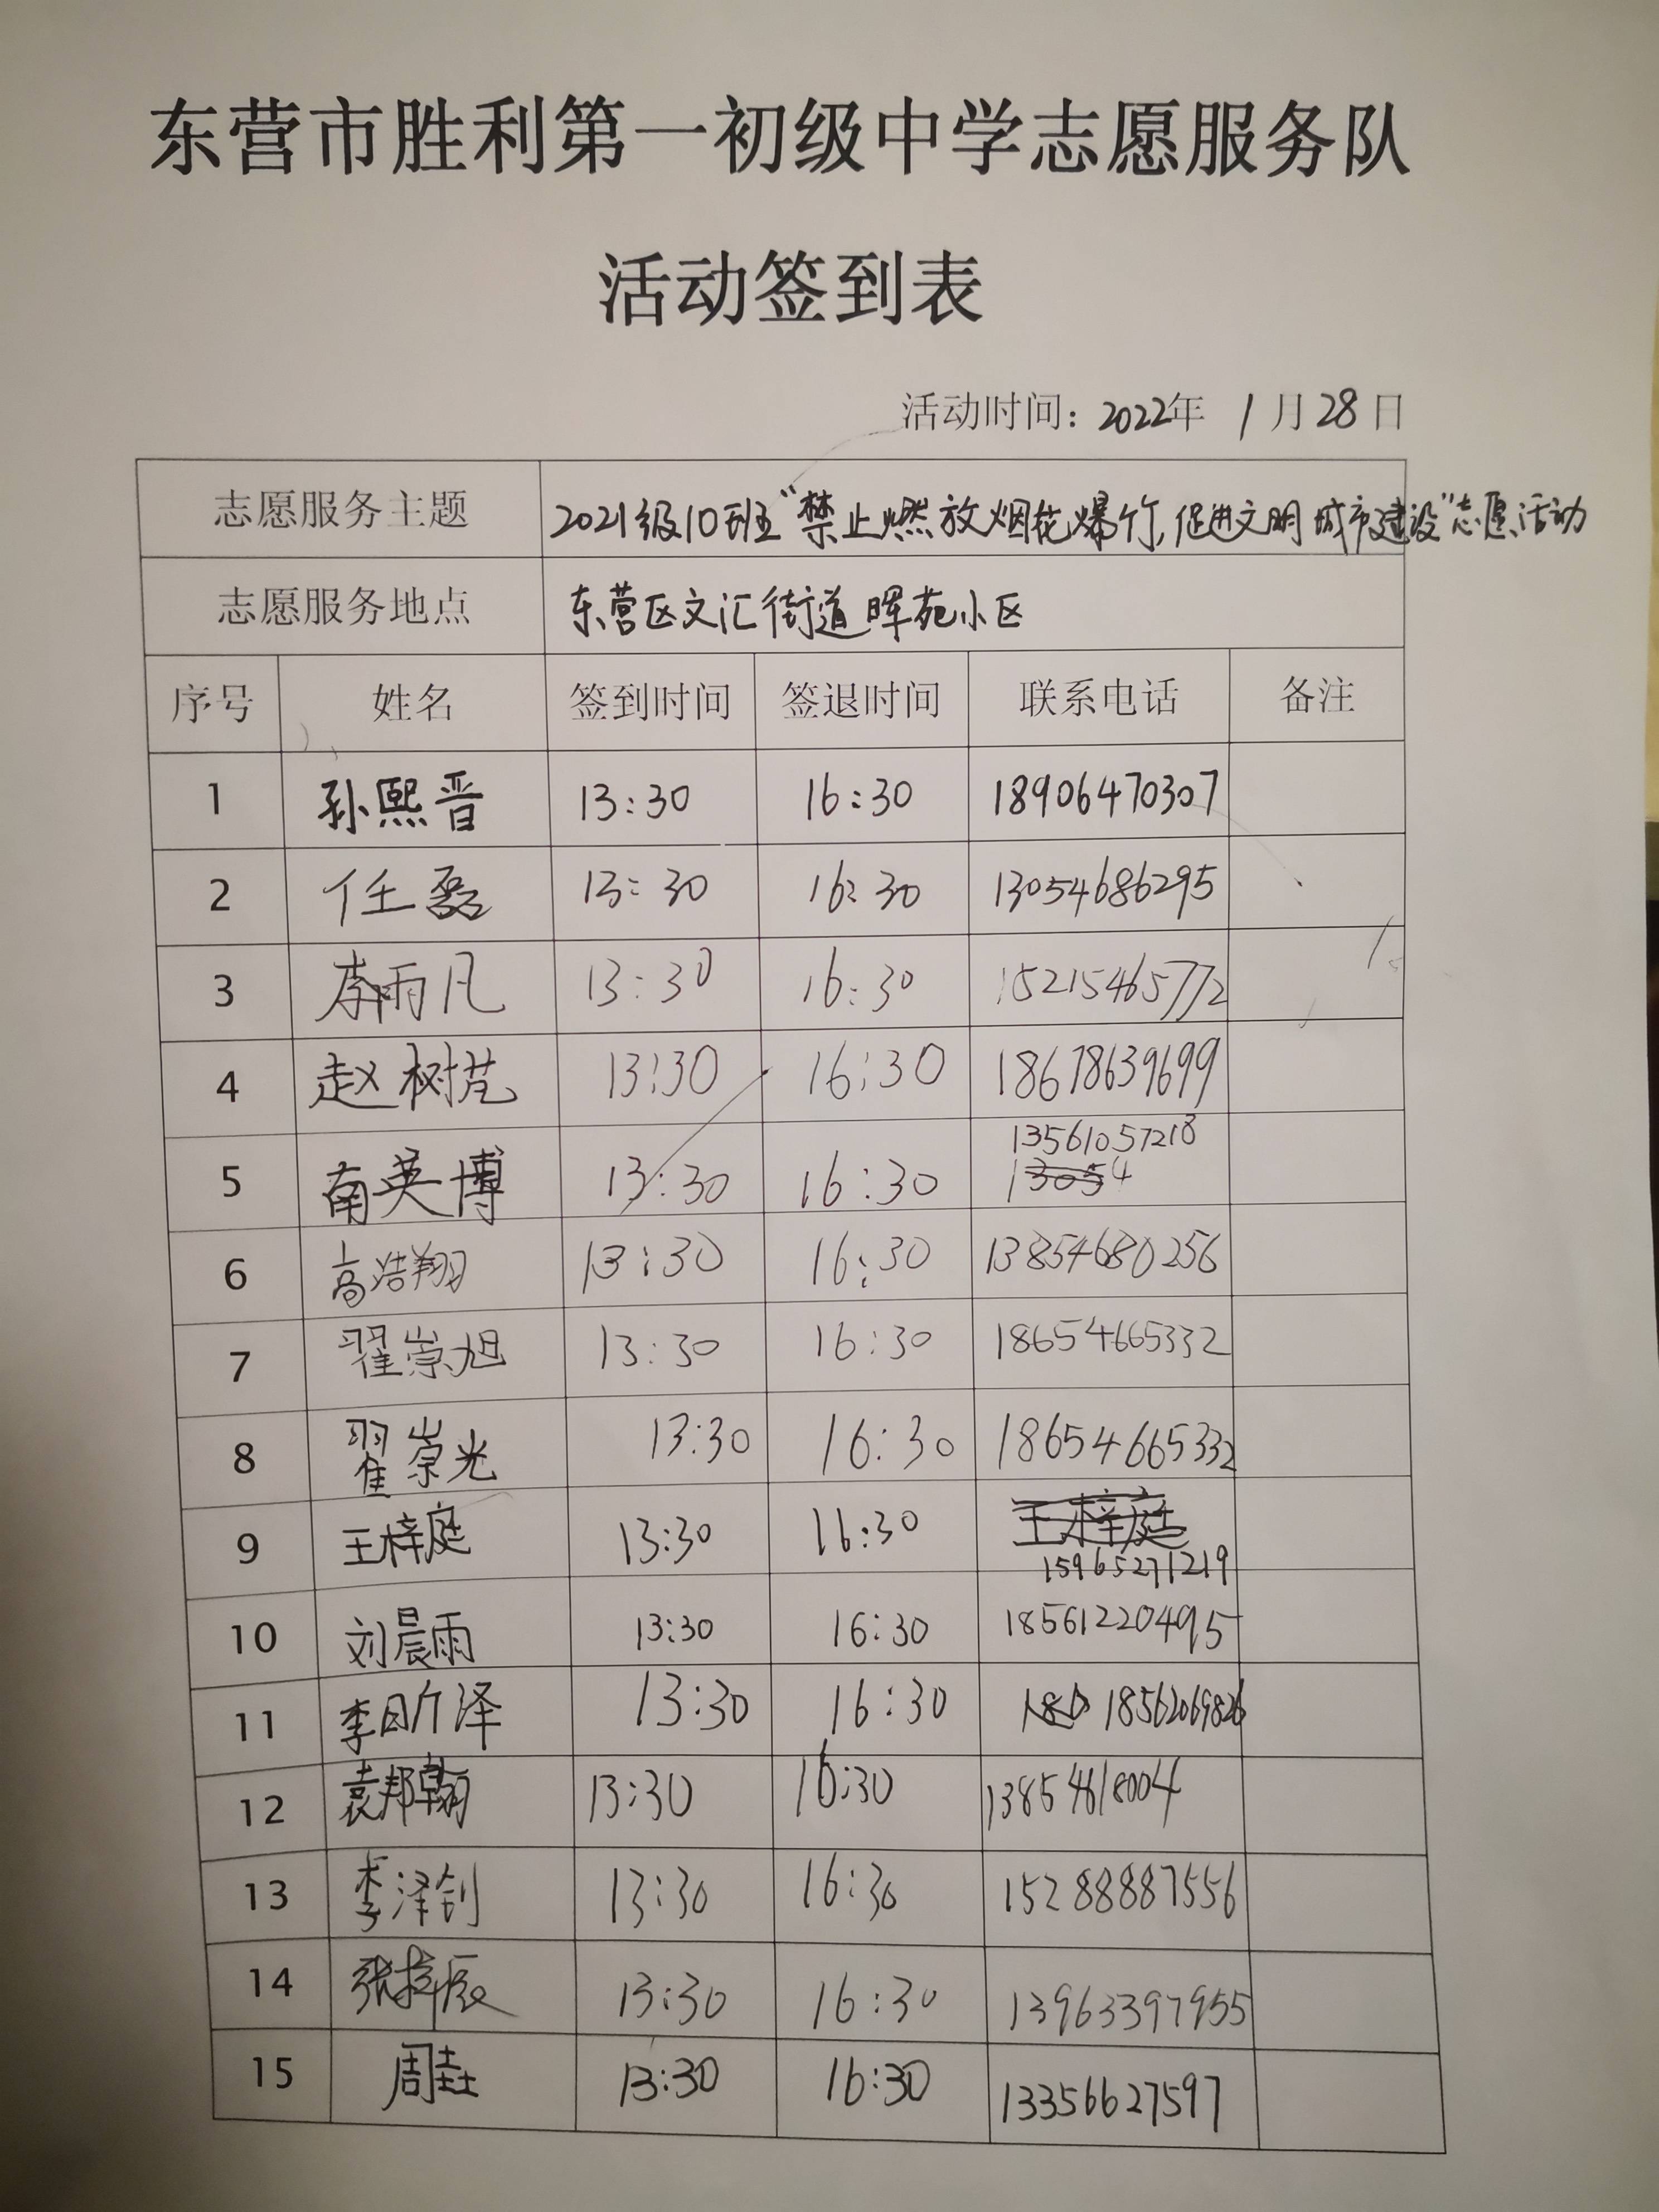 东营市胜利第一初级中学志愿服务队
活动签到表
活动时间：2022年 1月28日
志愿服务主题 2021级10班“禁止燃放烟花爆竹，促进文明城市建设”志愿活动
志愿服务地点 东营区文汇街道晖苑小区
序号 姓名 签到时间 签退时间 联系电话 备注
1 孙熙晋 13:30 16:30 18906470307
2 任磊 13:30 16:30 13054686295
3 李雨凡 13:30 16:30 15215465772
4 赵树艺 13:30 16:30 18678639699
5 南英博 13:30 16:30 13561057218
6 高浩翔 13:30 16:30 13854680256
7 翟崇旭 13:30 16:30 18654665332
8 翟崇光 13:30 16:30 18654665332
9 王梓庭 13:30 16:30 王梓庭
15965271219
10 刘晨雨 13:30 16:30 18561220495
11 李昕泽 13:30 16:30 18562069826
12 袁邦翰 13:30 16:30 13854618004
13 李泽钊 13:30 16:30 15288887556
14 张梓辰 13:30 16:30 13963397955
15 周垚 13:30 16:30 13356627597